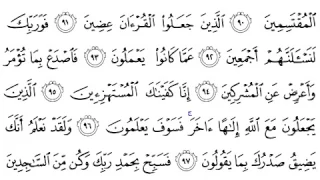 ٱلْمُقْتَسِمِينَ ٩٠ ٱلَّذِينَ جَعَلُوا۟ ٱلْقُرْءَانَ عِضِينَ ٩١ فَوَرَبِّكَ
لَنَسْـَٔلَنَّهُمْ أَجْمَعِينَ ٩٢ عَمَّا كَانُوا۟ يَعْمَلُونَ ٩٣ فَٱصْدَعْ بِمَا تُؤْمَرُ
وَأَعْرِضْ عَنِ ٱلْمُشْرِكِينَ ٩٤ إِنَّا كَفَيْنَٰكَ ٱلْمُسْتَهْزِءِينَ ٩٥ ٱلَّذِينَ
يَجْعَلُونَ مَعَ ٱللَّهِ إِلَٰهًا ءَاخَرَ ۚ فَسَوْفَ يَعْلَمُونَ ٩٦ وَلَقَدْ نَعْلَمُ أَنَّكَ
يَضِيقُ صَدْرُكَ بِمَا يَقُولُونَ ٩٧ فَسَبِّحْ بِحَمْدِ رَبِّكَ وَكُن مِّنَ ٱلسَّٰجِدِينَ